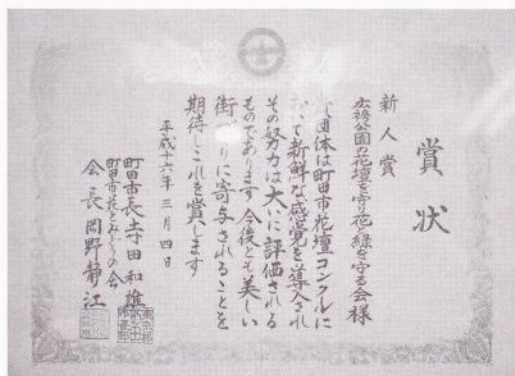 賞状
新人賞
広袴公園の花壇を守り花と緑を守る会様
団体は町田市花壇コンクルに
おいて新鮮な感覚を導入され
その努力は大いに評価される
ものであります今後とも美しい
街りに寄与されることを
期待しこれを賞します
平成十六年三月四日
町田市長寺田和雄
町田市花とみどりの会
会長岡野静江